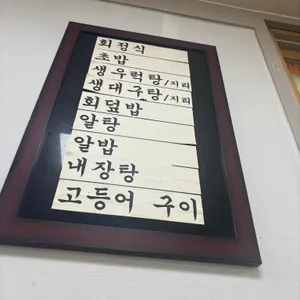 회정식
초밥
생우럭탕/지리
생대구탕/지리
회덮밥
알탕
알밥
내장탕
고등어 구이